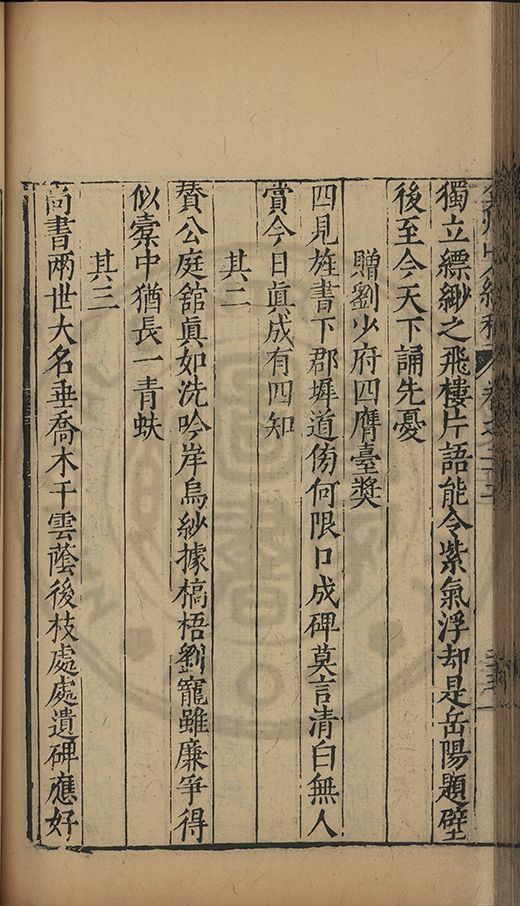 獨立縹緲之飛樓片語能令紫氣浮却是岳陽題壁
後至今天下誦先憂
贈劉少府四膺臺獎
四見旌書下郡墀道傍何限口成碑莫言清白無人
賞今日眞成有四知
其二
賛公庭舘眞如洗吟岸烏紗據槁梧劉寵雖廉爭得
似橐中猶長一青蚨
其三
尚書兩世大名垂喬木干雲蔭後枝處處遺碑應好